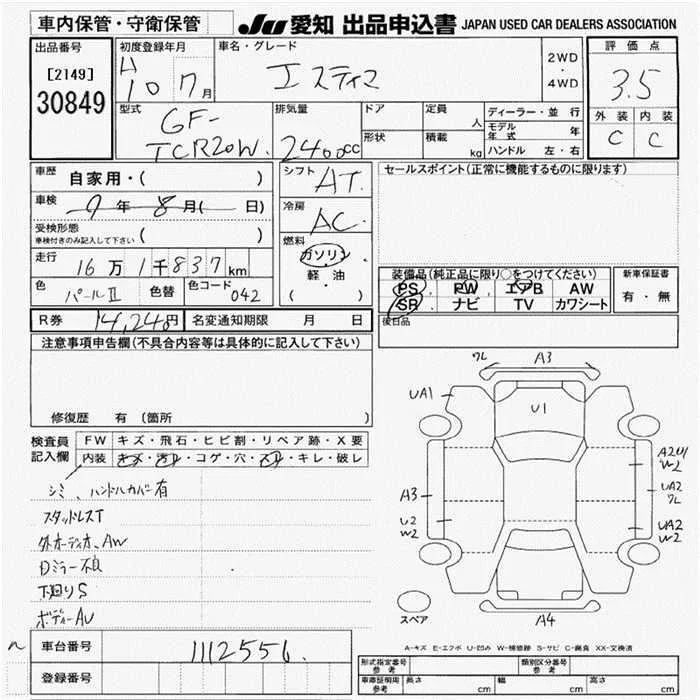 車内保管・守衛保管
JU 愛知 出品申込書 JAPAN USED CAR DEALERS ASSOCIATION
出品番号
[2149]
30849
初度登録年月
H
10 7月
車名・グレード
エスティマ
2WD
・
4WD
評価点
3.5
外装 内装
C C
型式
GF-
TCR20W
排気量
2400cc
ドア
形状
定員
人
積載
kg
ディーラー・並行
モデル
年式
年
ハンドル 左・右
車歴
自家用・( )
車検
9年 8月( 日)
受検形態
車検付きのみ記入して下さい ( )
走行
16万1千837km
色
パールII
色替
色コード
042
シフト
AT
冷房
AC
燃料
ガソリン
・
軽油
( ・ )
セールスポイント(正常に機能するものに限ります)
装備品(純正品に限り○をつけてください)
PS PW エアB AW
SR ナビ TV カワシート
新車保証書
有・無
後日品
R券 14,240円 名変通知期限 月 日
注意事項申告欄(不具合内容等は具体的に記入して下さい)
修復歴 有 (箇所
検査員
記入欄
FW キズ・飛石・ヒビ割・リペア跡・X要
内装 キズ・汚れ・コゲ・穴・スレ・キレ・破レ
シミ、ハンドルカバー有
スタッドレスT
外オーディオ、AW
Dミラー不良
下廻りS
ボディーAU
ワレ A3
UA1
U1
A2U1
W2
UA2
ワレ
A3
U2
W2
UA2
W2
A4
スペア
A-キズ E-エクボ U-凹み W-補修跡 S-サビ C-腐食 XX-交換済
車台番号 1112556
登録番号
形式指定番号
参考
類別区分番号
参考
車庫証明用
参考
長さ cm 幅 cm 高さ cm